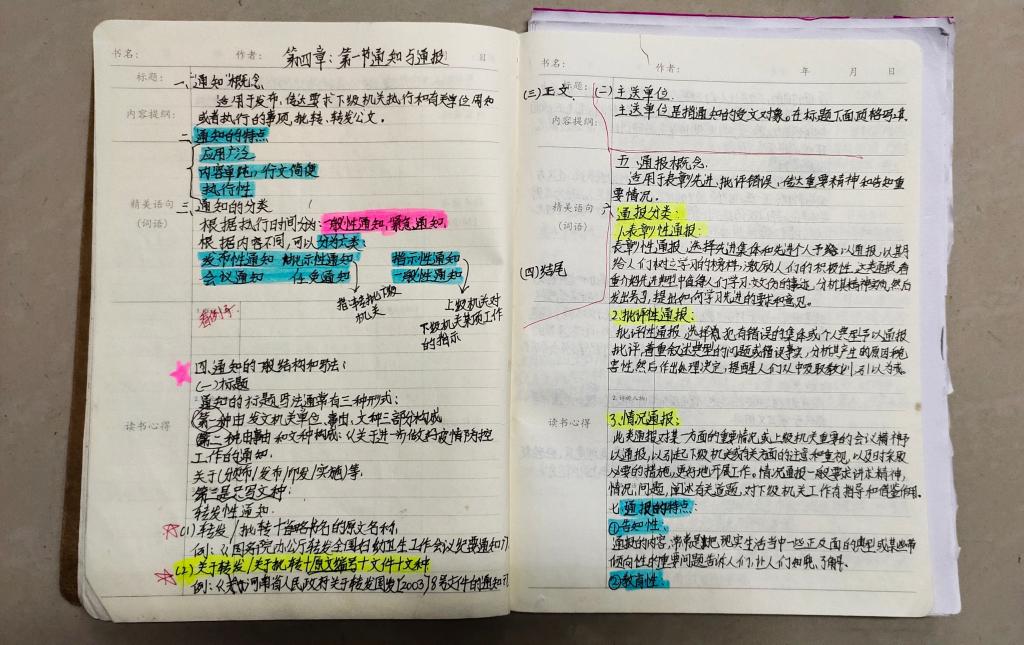 书名：
作者：
第四章：第一节通知与通报
日
标题：
一、“通知”概念
适用于发布、传达要求下级机关执行和有关单位周知
或者执行的事项，批转、转发公文。
内容提纲：
二、通知的特点
应用广泛
内容单纯，行文简便
执行性
精美语句
（词语）
三、通知的分类
根据执行时间分为：一般性通知，紧急通知。
根据内容不同，可以分为六类：
发布性通知 批示性通知 指示性通知
会议通知 任免通知 一般性通知
指转批下级
机关
上级机关对
下级机关某项工作
的指示
看例子
四、通知的一般结构和写法：
（一）标题
通知的标题写法通常有三种形式：
第一种由发文机关单位、事由、文种三部分构成
读书心得
第二种由事由和文种构成：《关于进一步做好疫情防控
工作的通知。
关于（颁布/发布/印发/实施）等.
第三是只写文种：
转发性通知：
（1）转发/批转+省略书名的原文名称.
例：《国务院办公厅转发全国妇幼卫生工作会议纪要通知》
（2）关于转发/关于批转+原文编号+文件+文种
例：《河南省人民政府关于转发国发[2003]8号文件的通知》
书名：
作者：
年 月 日
标题：
（三）正文
（二）主送单位
主送单位是指通知的受文对象。在标题下面顶格写其.
内容提纲：
五、通报概念.
适用于表彰先进，批评错误，传达重要精神和告知重
要情况。
精美语句
（词语）
六、通报分类：
1.表彰性通报：
表彰性通报，选择先进集体和先进个人予以通报，以其
给人们树立学习的榜样，激励人们的积极性，这类通报着
重介绍先进典型中值得人们学习、效仿的事迹，分析其精神实质，然后
发出号召，提出如何学习先进的要求和意见。
（四）结尾
2.批评性通报：
批评性通报，选择有犯有错误的集体或个人典型予以通报
批评，着重叙述典型的问题或错误事实，分析其产生的原因和危
害性，然后作出处理决定，提醒人们从中吸取教训，引以为戒
读书心得
3.情况通报：
此类通报对某一方面的重要情况或上级机关重要的会议精神予
以通报，以引起下级机关或有关方面的注意和重视，以及时采取
必要的措施，更好地开展工作。情况通报一般要求讲求精神，
情况，问题，阐述有关道题，对下级机关工作有指导和借鉴作用。
七、通报的特点：
①告知性：
通报的内容，常常是把现实生活当中一些正反面的典型或某些带
倾向性的重要问题告诉人们，让人们知晓，了解。
②教育性：